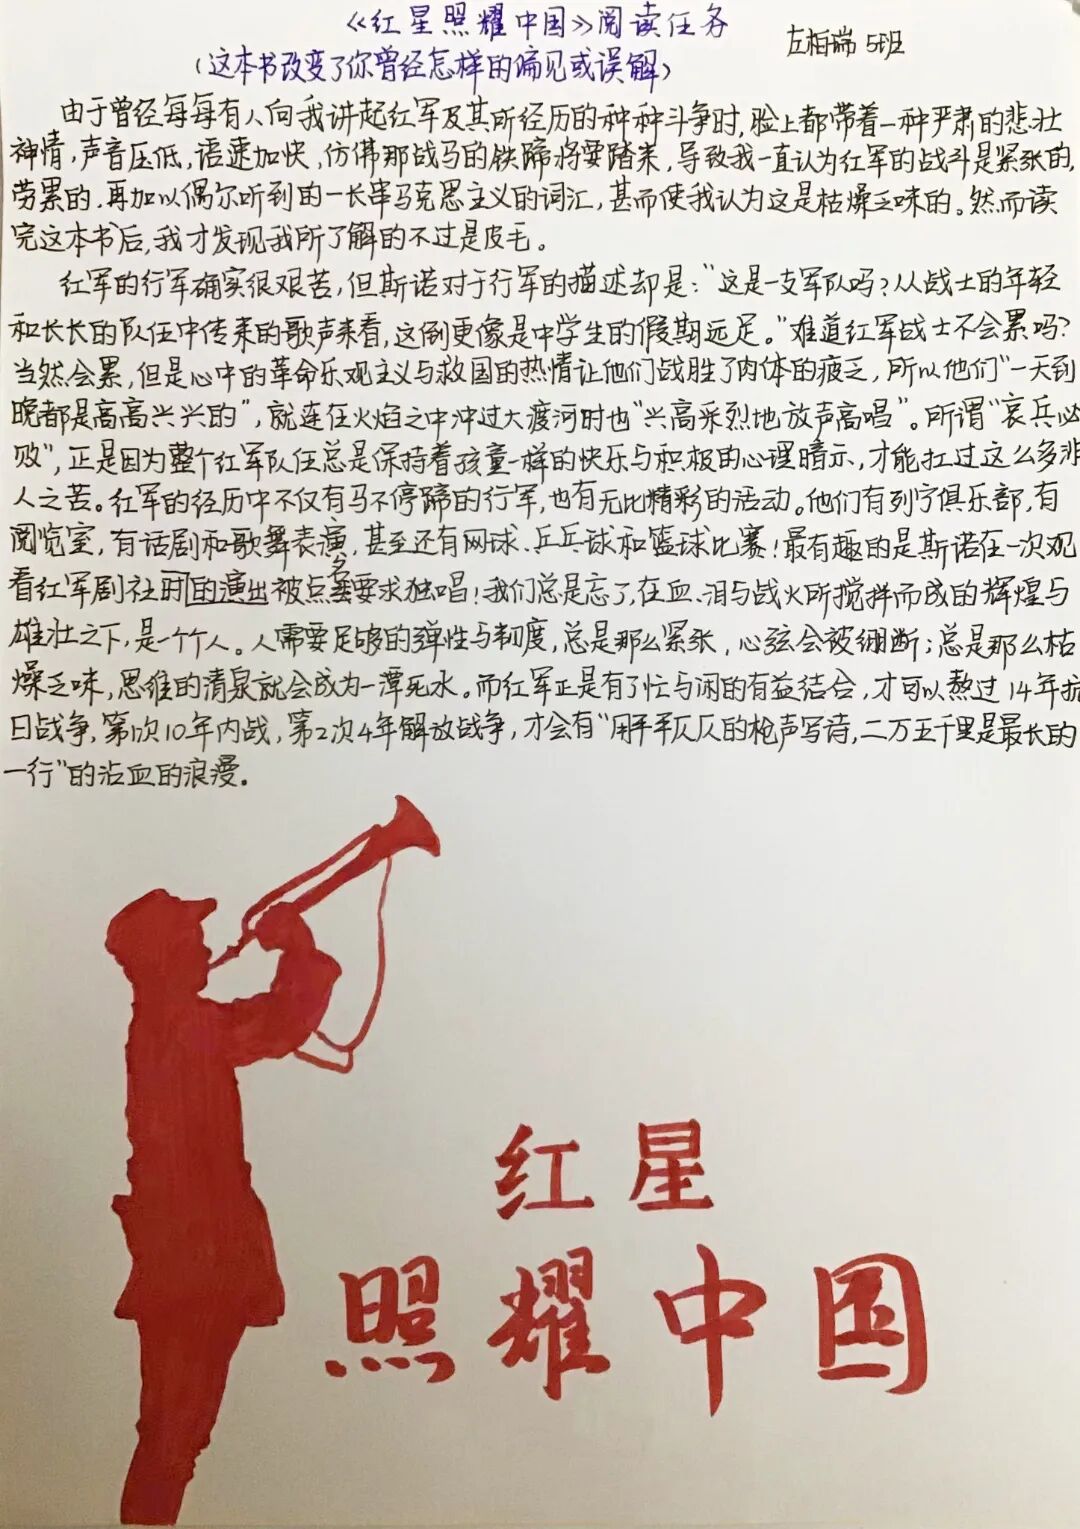 《红星照耀中国》阅读任务
左栢端 5班
(这本书改变了你曾经怎样的偏见或误解)
由于曾经每每有人向我讲起红军及其所经历的种种斗争时,脸上都带着一种严肃的悲壮
神情,声音压低,语速加快,仿佛那战马的铁蹄将要踏来,导致我一直认为红军的战斗是紧张的,
劳累的.再加以偶尔听到的一长串马克思主义的词汇,甚而使我认为这是枯燥乏味的。然而读
完这本书后,我才发现我所了解的不过是皮毛。
红军的行军确实很艰苦,但斯诺对于行军的描述却是:“这是一支军队吗?从战士的年轻
和长长的队伍中传来的歌声来看,这倒更像是中学生的假期远足。”难道红军战士不会累吗?
当然会累,但是心中的革命乐观主义与救国的热情让他们战胜了肉体的疲乏,所以他们“一天到
晚都是高高兴兴的”,就连在火焰之中冲过大渡河时也“兴高采烈地放声高唱”。所谓“哀兵必
败”,正是因为整个红军队伍总是保持着孩童一样的快乐与积极的心理暗示,才能扛过这么多非
人之苦。红军的经历中不仅有马不停蹄的行军,也有无比精彩的活动。他们有列宁俱乐部,有
阅览室,有话剧和歌舞表演,甚至还有网球、乒乓球和篮球比赛!最有趣的是斯诺在一次观
看红军剧社时的演出被点名要求独唱!我们总是忘了,在血、泪与战火所搅拌而成的辉煌与
雄壮之下,是一个个人。人需要足够的弹性与韧度,总是那么紧张,心弦会被绷断;总是那么枯
燥乏味,思维的清泉就会成为一潭死水。而红军正是有了忙与闲的有益结合,才可以熬过14年抗
日战争,第1次10年内战,第2次4年解放战争,才会有“用平平仄仄的枪声写诗,二万五千里是最长的
一行”的沾血的浪漫。
红星
照耀中国